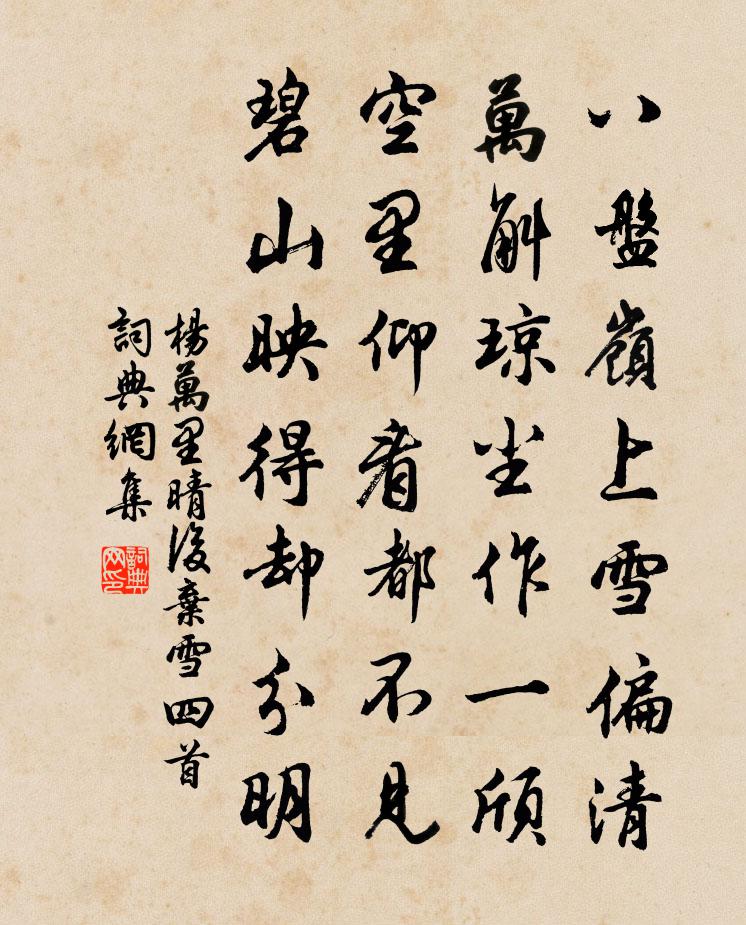 八盤嶺上雪偏清
萬斛琼尘作一傾
空里仰看都不見
碧山映得却分明
楊萬里晴後棄雪四首
詞典網集
詞典网印